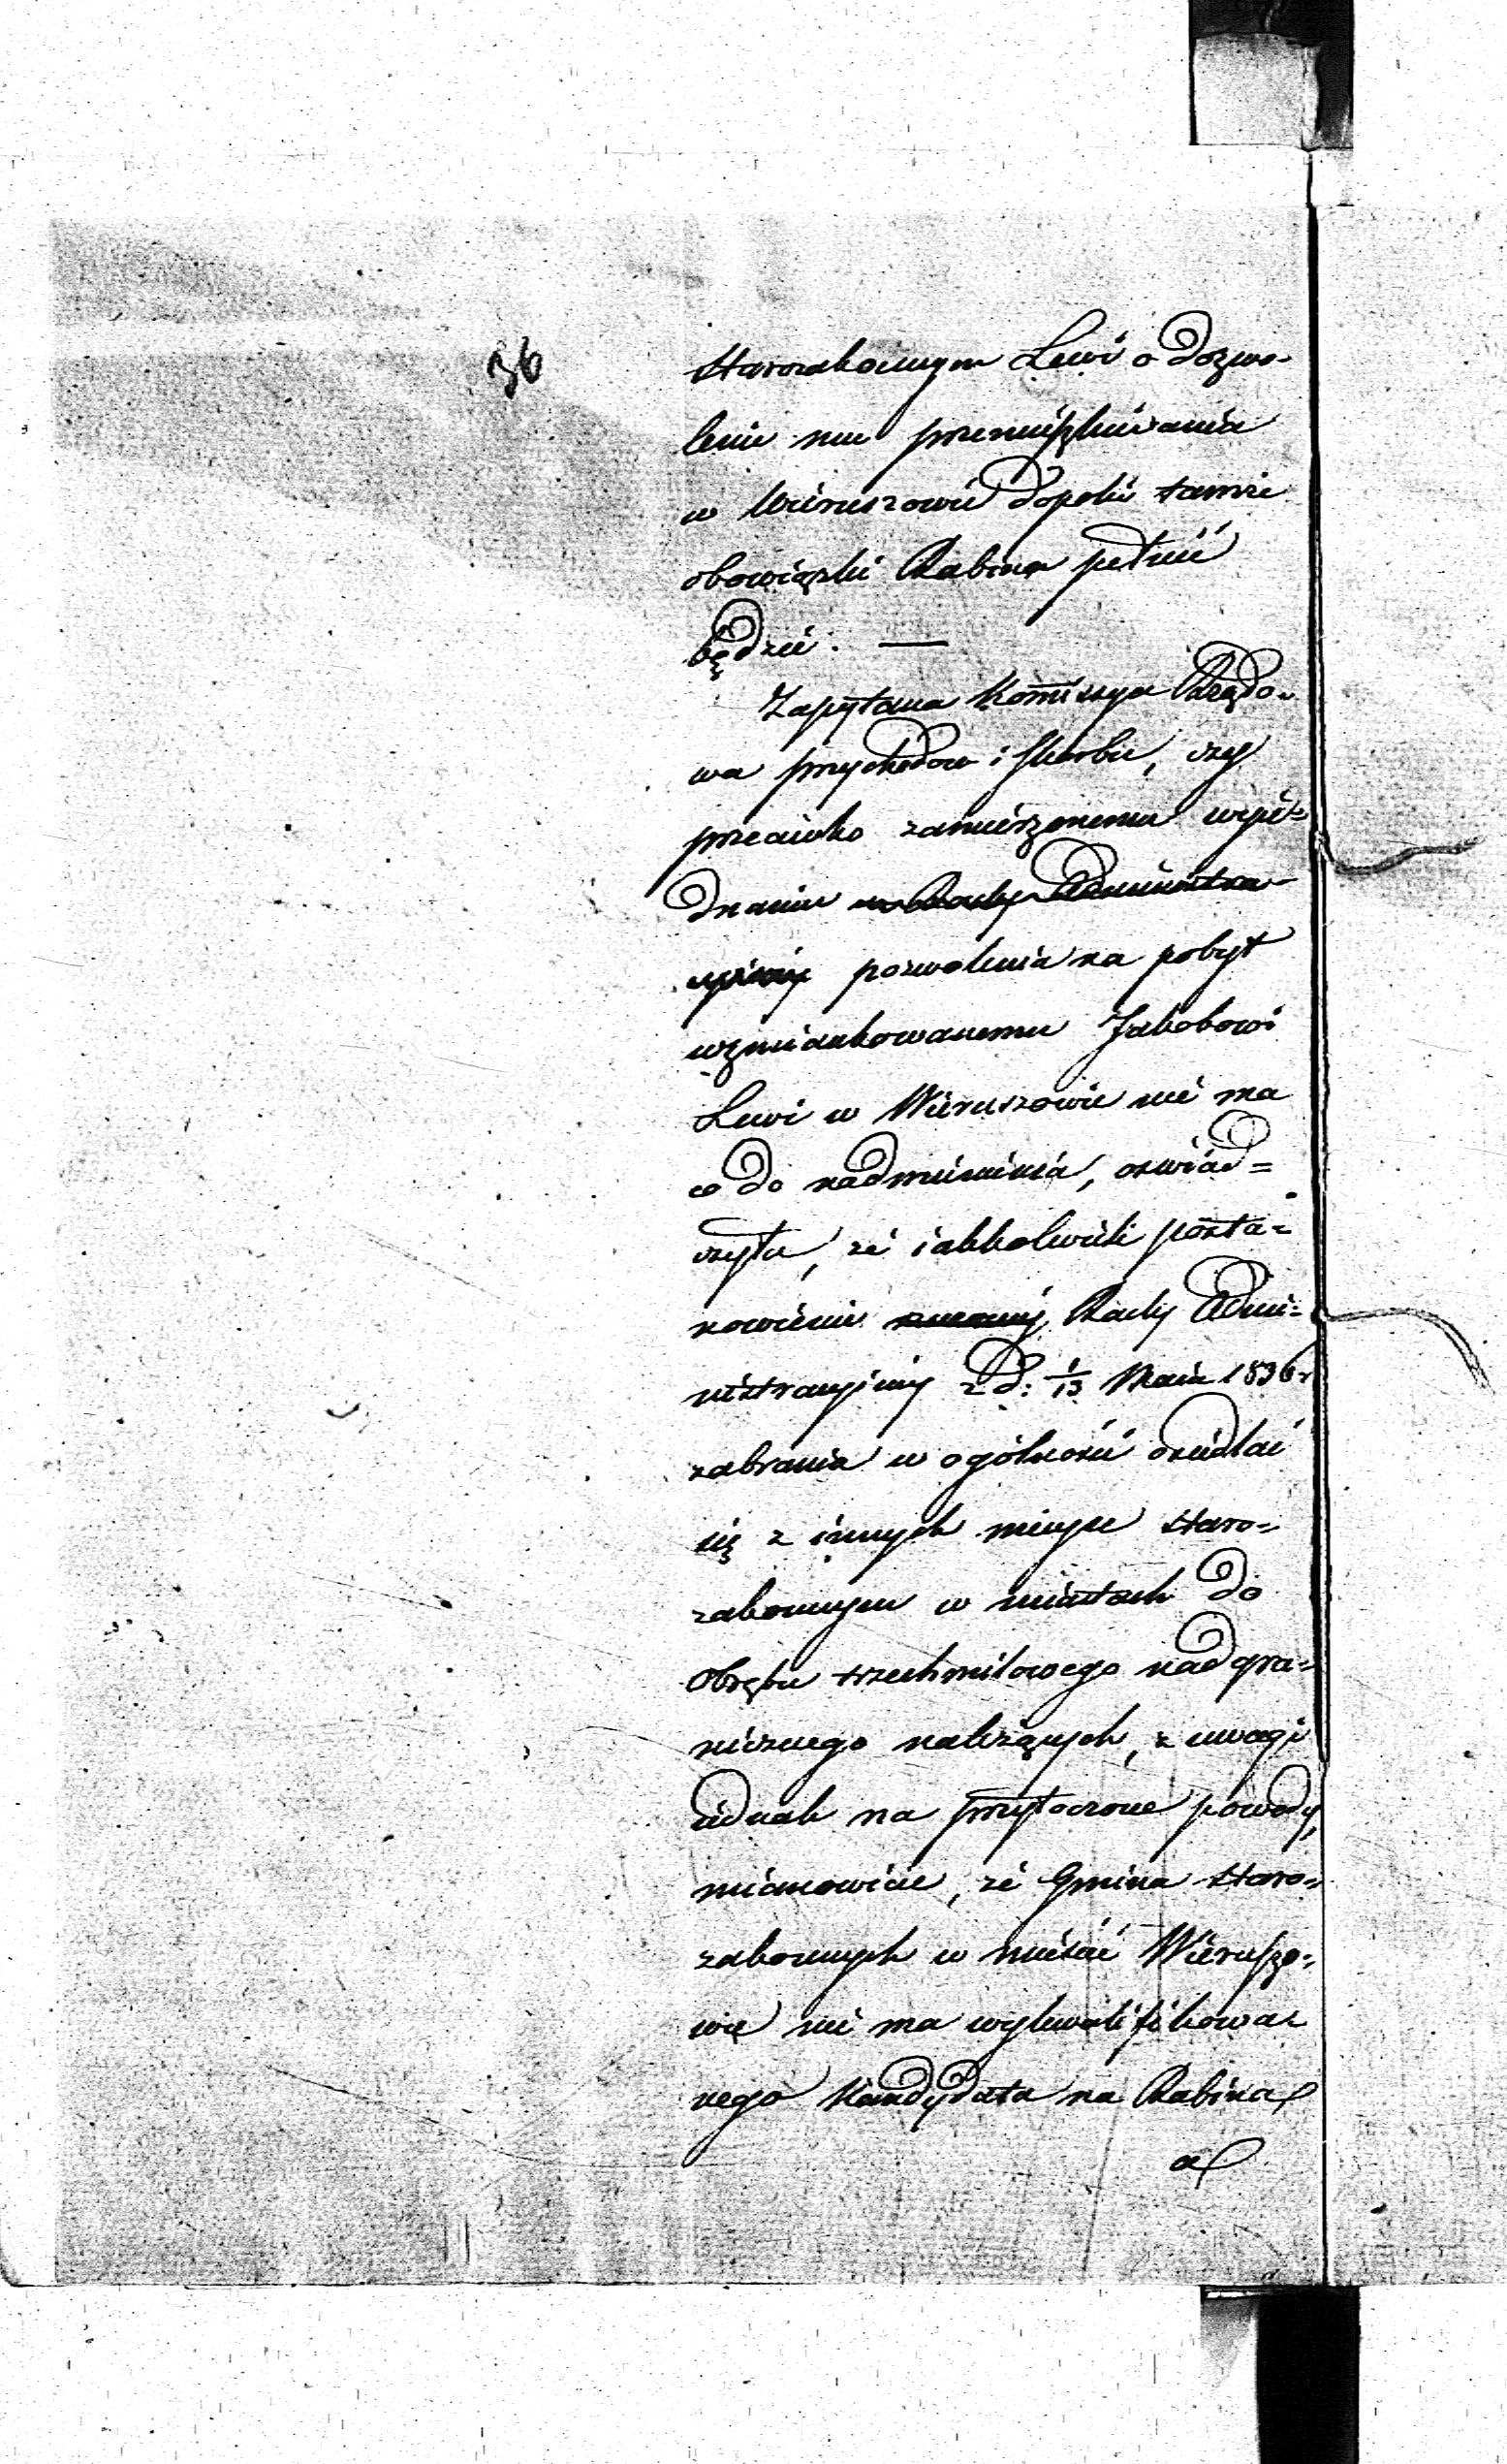 36
Starozakonnym Lewi o dozwo-
lenie mu przemieszkiwania
w Wieruszowie dopóki tamże
obowiązki Rabina pełnić
będzie. —
Zapytana Kommissya Rządo-
wa Przychodow i Skarbu, czy
przeciwko zamierzonemu wyie-
dnaniu w Rady Administra-
cyjnéy pozwolenia na pobyt
wzmiankowanemu Jakobowi
Lewi w Wieruszowie nie ma
co do nadmienienia, oświad=
czyła, że iakkolwiek posta=
nowienie Rady Admi=
nistracyjnéy z d: 1/13 Maia 1836 r
zabrania w ogólności osiedlać
się z innych mieysc Staro=
zakonnym w miastach do
Obrębu trzechmilowego nadgra=
nicznego należących, z uwagi
iednak na przytoczone powody,
mianowicie, że Gmina Staro=
zakonnych w mieście Wieruszo=
wie nie ma wykwalifikowa=
nego Kandydata na Rabina
a